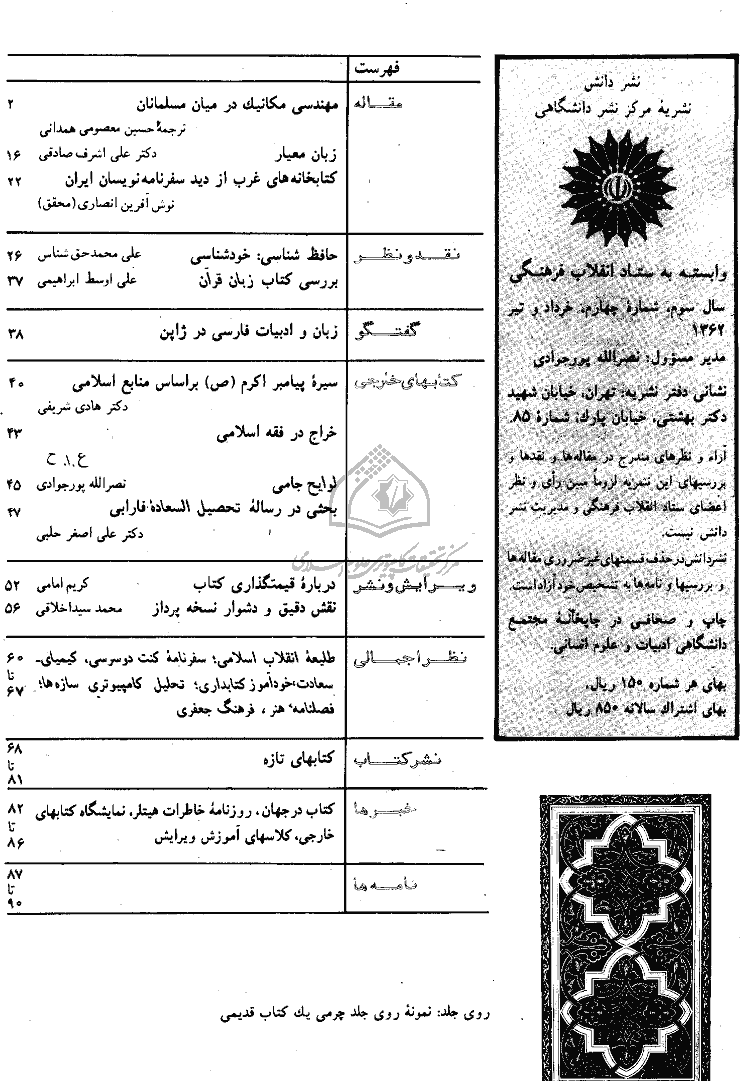 نشر دانش
نشریهٔ مرکز نشر دانشگاهی
وابسته به ستاد انقلاب فرهنگی
سال سوم، شمارهٔ چهارم، خرداد و تیر
۱۳۶۲
مدیر مسؤول: نصرالله پورجوادی
نشانی دفتر نشریه: تهران، خیابان شهید
دکتر بهشتی، خیابان پارك، شمارهٔ ۸۵.
آراء و نظرهای مندرج در مقاله‌ها و نقدها و
بررسیهای این نشریه لزوماً مبین رأی و نظر
اعضای ستاد انقلاب فرهنگی و مدیریت نشر
دانش نیست.
نشر دانش در حذف قسمتهای غیر ضروری مقاله‌ها
و بررسیها و نامه‌ها به تشخیص خود آزاد است.
چاپ و صحافی در چاپخانهٔ مجتمع
دانشگاهی ادبیات و علوم انسانی.
بهای هر شماره ۱۵۰ ریال.
بهای اشتراك سالانه ۸۵۰ ریال
فهرست
مقاله مهندسی مکانیك در میان مسلمانان ۲
ترجمهٔ حسین معصومی همدانی
زبان معیار دکتر علی اشرف صادقی ۱۶
کتابخانه‌های غرب از دید سفرنامه‌نویسان ایران ۲۲
نوش آفرین انصاری (محقق)
نقد و نظر حافظ شناسی: خودشناسی علی محمد حق شناس ۲۶
بررسی کتاب زبان قرآن علی اوسط ابراهیمی ۳۷
گفتگو زبان و ادبیات فارسی در ژاپن ۳۸
کتابهای خارجی سیرهٔ پیامبر اکرم (ص) براساس منابع اسلامی ۴۰
دکتر هادی شریفی
خراج در فقه اسلامی ۴۳
ع.ا. ح
لوایح جامی نصرالله پورجوادی ۴۵
بحثی در رسالهٔ تحصیل السعادهٔ فارابی ۴۷
دکتر علی اصغر حلبی
مرکز تحقیقات کامپیوتری علوم اسلامی
ویرایش و نشر دربارهٔ قیمتگذاری کتاب کریم امامی ۵۲
نقش دقیق و دشوار نسخه پرداز محمد سیداخلاقی ۵۶
نظر اجمالی طلیعهٔ انقلاب اسلامی؛ سفرنامهٔ کنت دوسرسی، کیمیای- ۶۰
سعادت؛ خودآموز کتابداری؛ تحلیل کامپیوتری سازه‌ها؛ تا
فصلنامهٔ هنر، فرهنگ جعفری ۶۷
۶۸
نشر کتاب کتابهای تازه تا
۸۱
خبرها کتاب در جهان، روزنامهٔ خاطرات هیتلر، نمایشگاه کتابهای ۸۲
تا
خارجی، کلاسهای آموزش ویرایش ۸۶
۸۷
نامه‌ها تا
۹۰
روی جلد: نمونهٔ روی جلد چرمی یك کتاب قدیمی